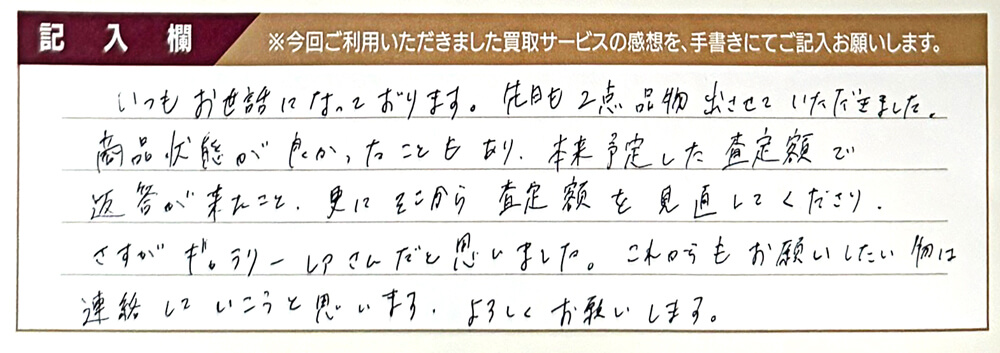 記入欄
※今回ご利用いただきました買取サービスの感想を、手書きにてご記入お願いします。
いつもお世話になっております。先日も2点品物出させていただきました。
商品状態が良かったこともあり、本来予定した査定額で
返答が来たこと、更にそこから査定額を見直してくださり、
さすがギャラリーレアさんだと思いました。これからもお願いしたい物は
連絡していこうと思います。よろしくお願いします。